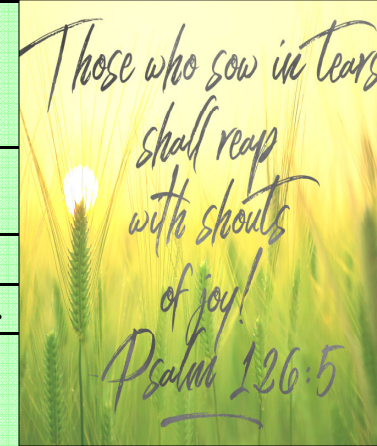 Those who sow in tears
shall reap
with shouts
of joy!
Psalm 126:5